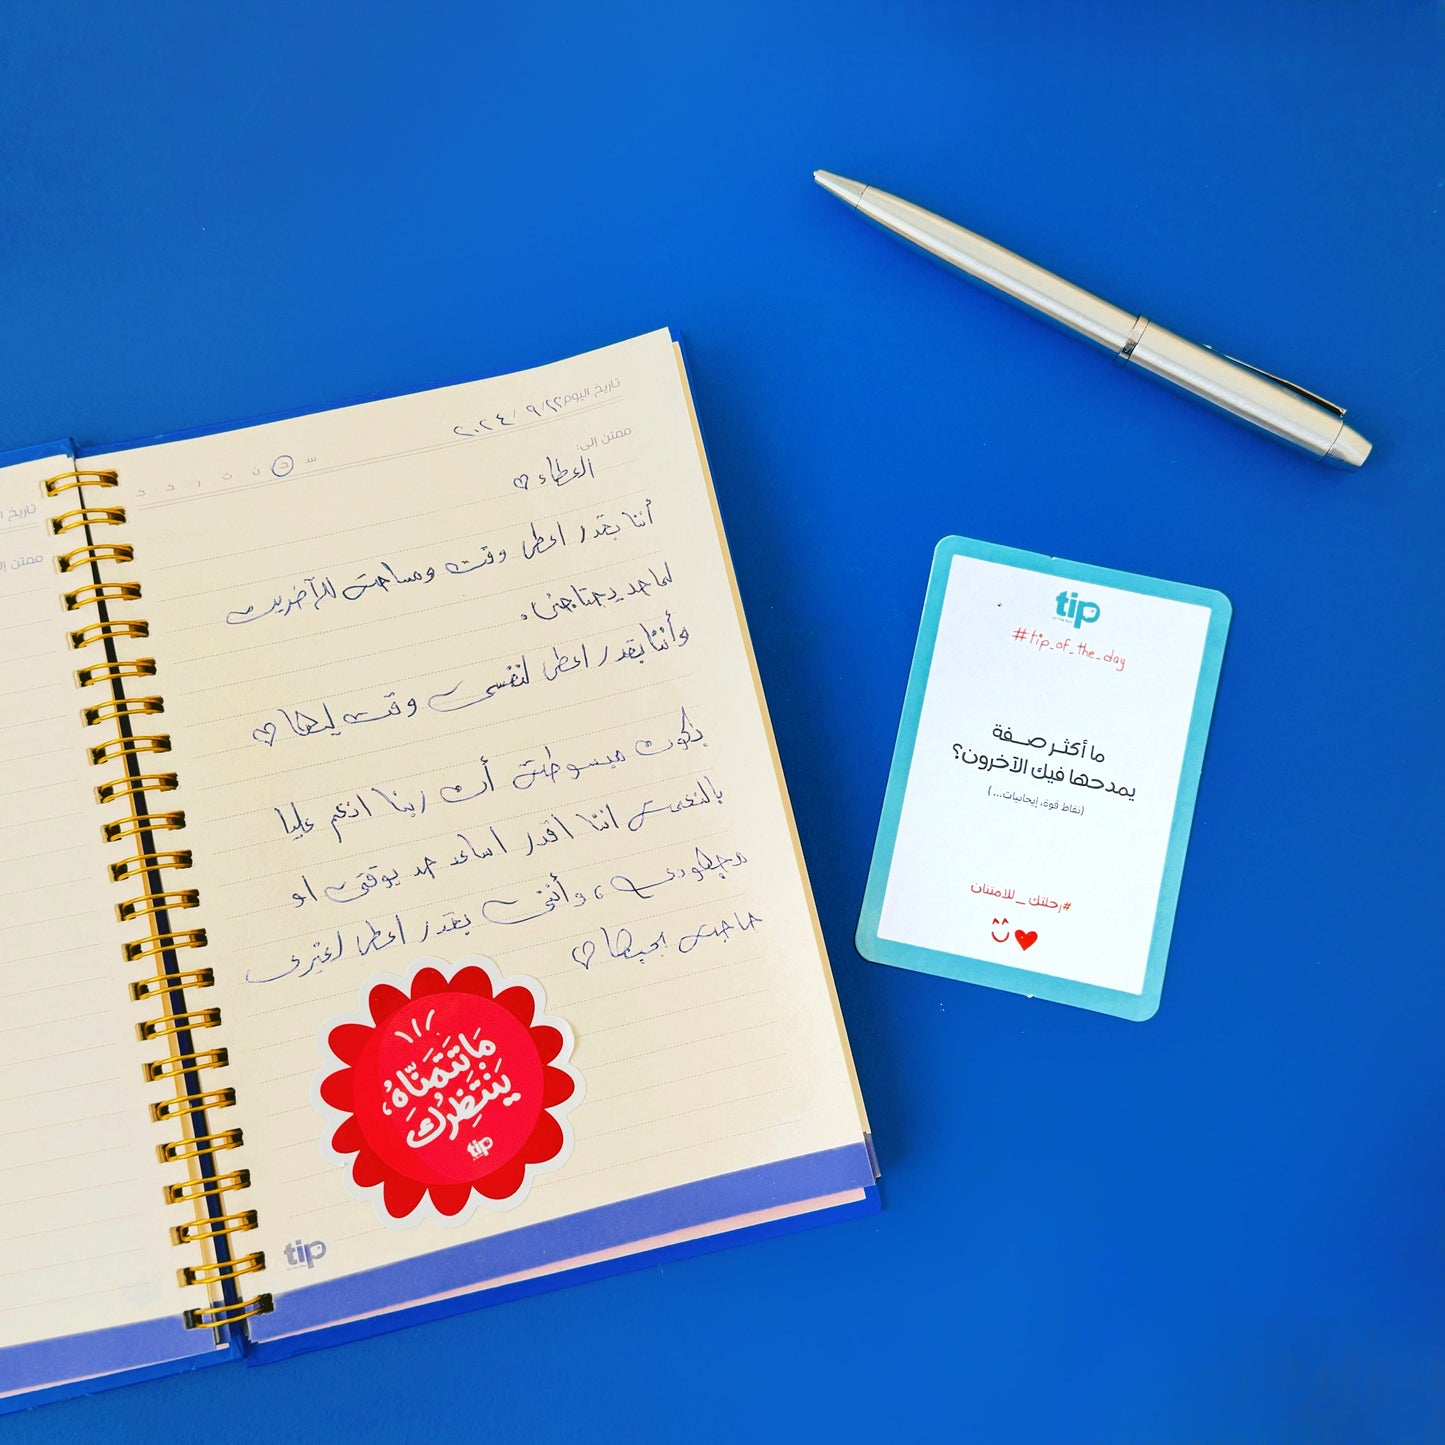 تاريخ اليوم ٢٢/ ٩ / ٢٠٢٤
س ح ن ث ر خ ج
ممتن إلى:
العطاء ♡
أننا بقدر اعطي وقت ومساحة للآخرين
لما حد يحتاجني.
وأننا بقدر اعطي لنفسي وقت ليها ♡
بكون مبسوطة أن ربنا انعم عليا
بالنعمة اننا اقدر اساعد حد بوقتي او
مجهودي، وأنني بقدر اعطي لغيري
حاجة بحبها ♡
مَا تَتَمَنَّاهُ،
يَنْتَظِرُكَ
tip
tip
تاريخ ا
ممتن إل
tip
#tip_of_the_day
ما أكثر صفة
يمدحها فيك الآخرون؟
(نقاط قوة، إيجابيات...)
#رحلتك_للامتنان